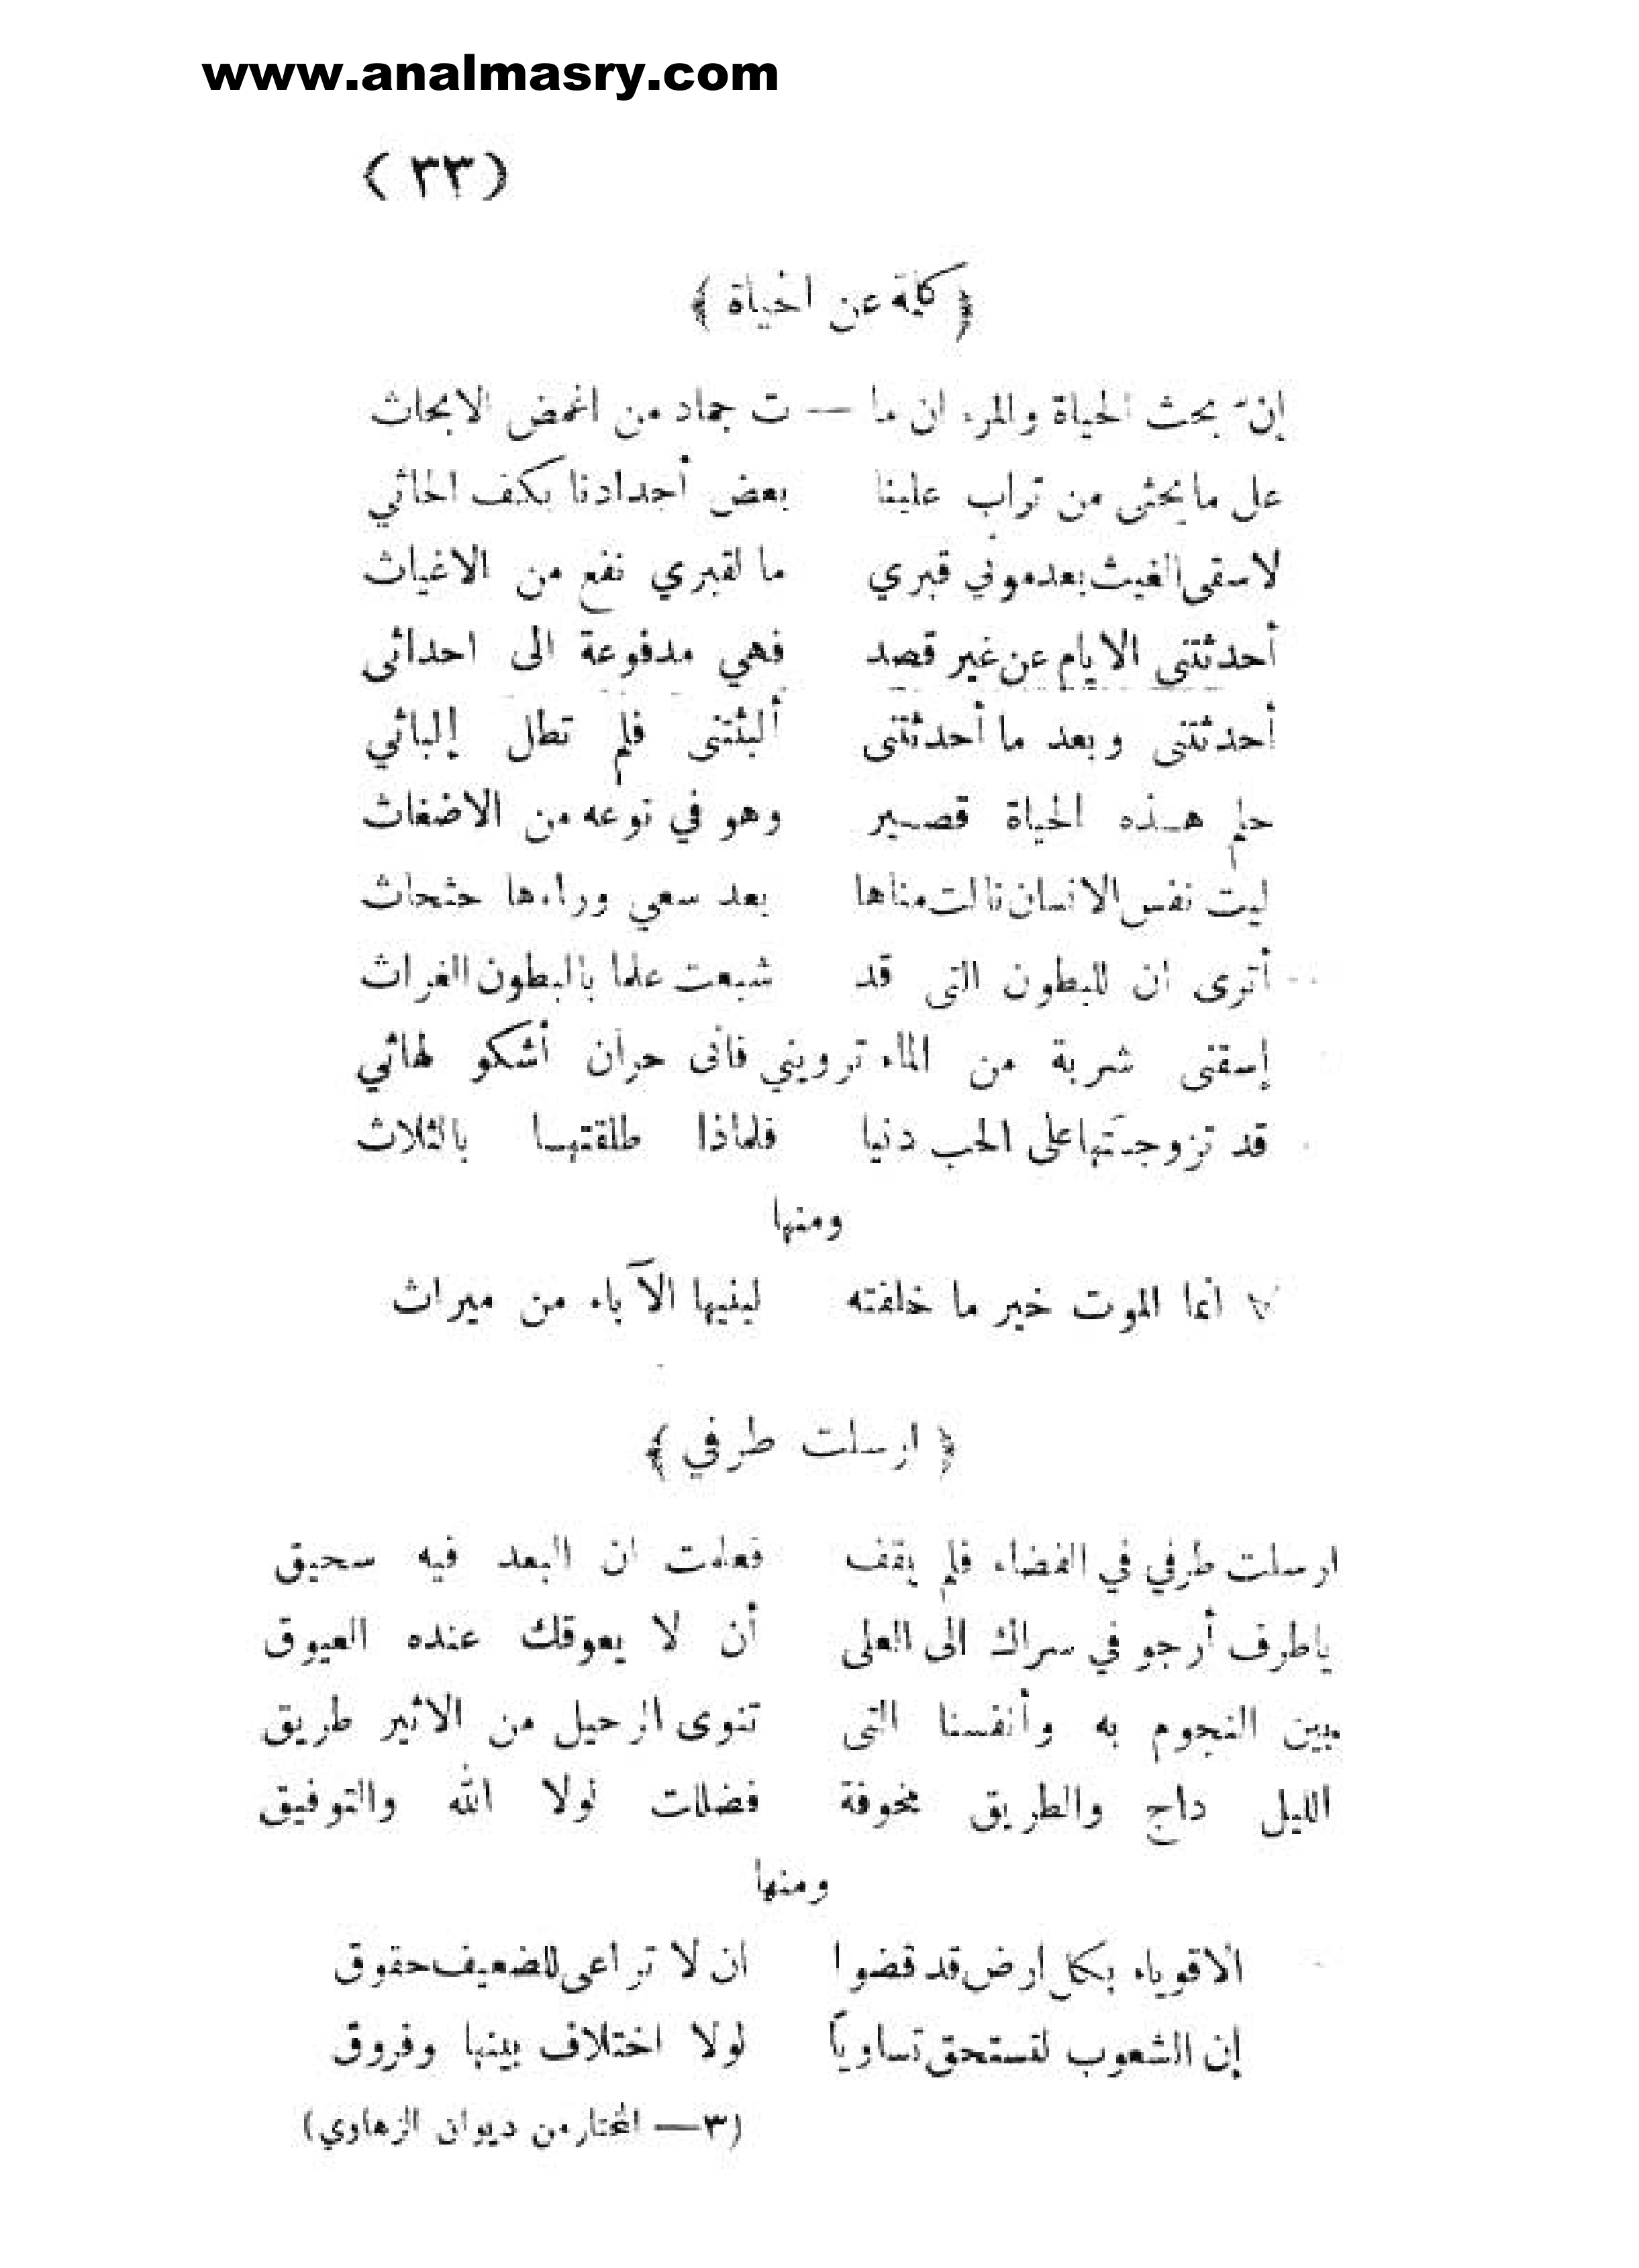 www.analmasry.com
(٣٣)
﴿كلمة عن الحياة﴾
إنّ بحث الحياة والمرء ان ما — ت جماد من اغمض الابحاث
عل ما يحثى من تراب علينا بعض أجدادنا بكف الحاثي
لا سقى الغيث بعد موتي قبري ما لقبري نفع من الاغياث
أحدثتنى الايام عن غير قصد فهي مدفوعة الى احداثى
أحدثتنى وبعد ما أحدثتنى ألبثتنى فلم تطل إلباثي
حلم هذه الحياة قصير وهو في نوعه من الاضغاث
ليت نفس الانسان نالت مناها بعد سعي وراءها حثحاث
أترى ان للبطون التى قد شبعت علما بالبطون الغراث
إسقنى شربة من الماء ترويني فانى حران أشكو لهاثي
قد تزوجتَها على الحب دنيا فلماذا طلقتها بالثلاث
ومنها
انما الموت خير ما خلفته لبنيها الآباء من ميراث
﴿ارسلت طرفي﴾
ارسلت طرفي في الفضاء فلم يقف فعلمت ان البعد فيه سحيق
ياطرف أرجو في سراك الى العلى أن لا يعوقك عنده العيوق
مبين النجوم به وأنفسنا التى تنوى الرحيل من الاثير طريق
الليل داج والطريق مخوفة فضللت لولا الله والتوفيق
ومنها
الاقوياء بكل ارض قد قضوا ان لا تراعى للضعيف حقوق
إن الشعوب لتستحق تساوياً لولا اختلاف بينها وفروق
(٣— المختار من ديوان الزهاوي)